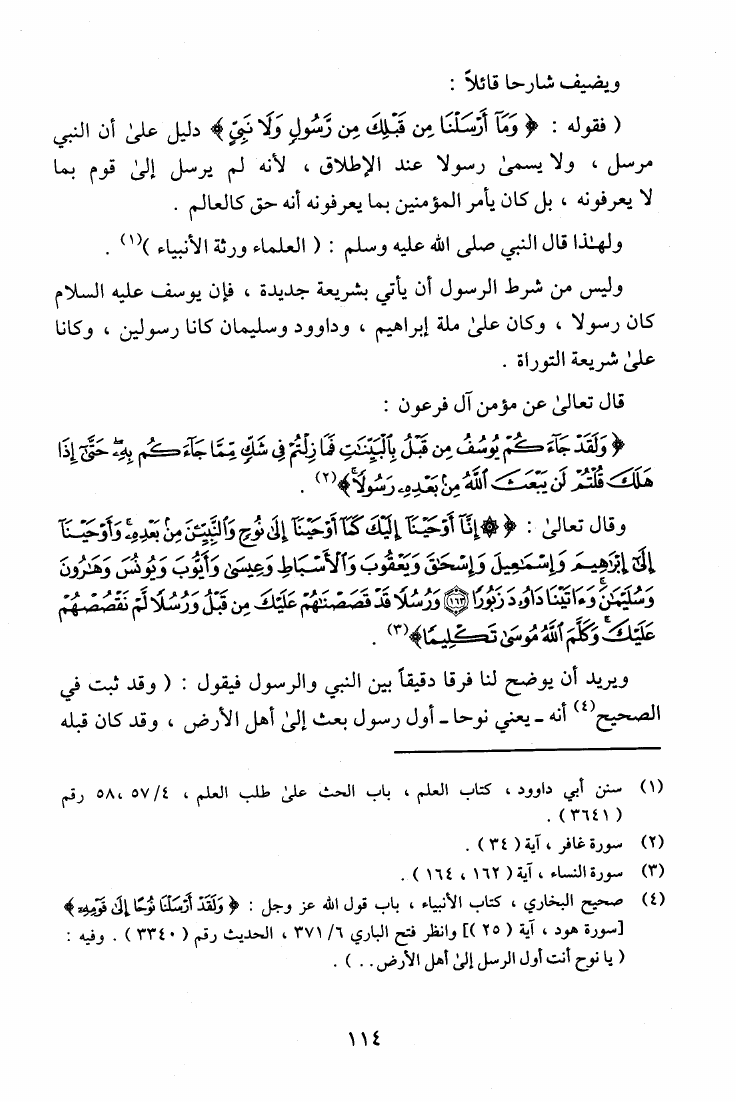 ويضيف شارحا قائلاً :
( فقوله : ﴿ وَمَآ أَرْسَلْنَا مِن قَبْلِكَ مِن رَّسُولٍ وَلَا نَبِيٍّ ﴾ دليل علىٰ أن النبي
مرسل ، ولا يسمىٰ رسولا عند الإطلاق ، لأنه لم يرسل إلىٰ قوم بما
لا يعرفونه ، بل كان يأمر المؤمنين بما يعرفونه أنه حق كالعالم .
ولهـٰذا قال النبي صلى الله عليه وسلم : ( العلماء ورثة الأنبياء )(١) .
وليس من شرط الرسول أن يأتي بشريعة جديدة ، فإن يوسف عليه السلام
كان رسولا ، وكان علىٰ ملة إبراهيم ، وداوود وسليمان كانا رسولين ، وكانا
علىٰ شريعة التوراة .
قال تعالىٰ عن مؤمن آل فرعون :
﴿ وَلَقَدْ جَآءَكُمْ يُوسُفُ مِن قَبْلُ بِالْبَيِّنَٰتِ فَمَا زِلْتُمْ فِي شَكٍّ مِّمَّا جَآءَكُم بِهِۦ حَتَّىٰٓ إِذَا
هَلَكَ قُلْتُمْ لَن يَبْعَثَ ٱللَّهُ مِنۢ بَعْدِهِۦ رَسُولًا ﴾(٢) .
وقال تعالىٰ : ﴿ ۞ إِنَّآ أَوْحَيْنَآ إِلَيْكَ كَمَآ أَوْحَيْنَآ إِلَىٰ نُوحٍ وَٱلنَّبِيِّـۧنَ مِنۢ بَعْدِهِۦ ۚ وَأَوْحَيْنَآ
إِلَىٰٓ إِبْرَٰهِيمَ وَإِسْمَٰعِيلَ وَإِسْحَٰقَ وَيَعْقُوبَ وَٱلْأَسْبَاطِ وَعِيسَىٰ وَأَيُّوبَ وَيُونُسَ وَهَٰرُونَ
وَسُلَيْمَٰنَ ۚ وَءَاتَيْنَا دَاوُۥدَ زَبُورًا ﴿١٦٣﴾ وَرُسُلًا قَدْ قَصَصْنَٰهُمْ عَلَيْكَ مِن قَبْلُ وَرُسُلًا لَّمْ نَقْصُصْهُمْ
عَلَيْكَ ۚ وَكَلَّمَ ٱللَّهُ مُوسَىٰ تَكْلِيمًا ﴾(٣) .
ويريد أن يوضح لنا فرقا دقيقاً بين النبي والرسول فيقول : ( وقد ثبت في
الصحيح(٤) أنه ـ يعني نوحا ـ أول رسول بعث إلىٰ أهل الأرض ، وقد كان قبله
(١) سنن أبي داوود ، كتاب العلم ، باب الحث علىٰ طلب العلم ، ٥٧/٤ ،٥٨ رقم
( ٣٦٤١ ) .
(٢) سورة غافر ، آية ( ٣٤ ) .
(٣) سورة النساء ، آية ( ١٦٢ ، ١٦٤ ) .
(٤) صحيح البخاري ، كتاب الأنبياء ، باب قول الله عز وجل : ﴿ وَلَقَدْ أَرْسَلْنَا نُوحًا إِلَىٰ قَوْمِهِۦ ﴾
[سورة هود ، آية ( ٢٥ )] وانظر فتح الباري ٣٧١/٦ ، الحديث رقم ( ٣٣٤٠ ) . وفيه :
( يا نوح أنت أول الرسل إلىٰ أهل الأرض . . ) .
١١٤